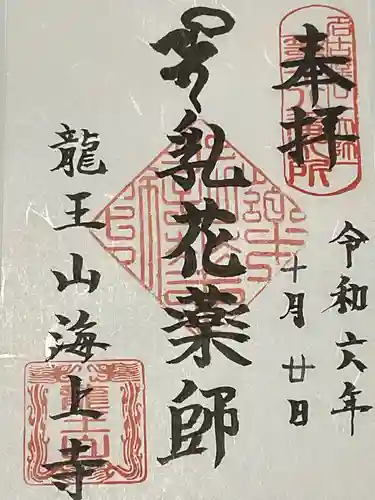 奉拝
令和六年
十月廿日
乳花薬師
龍王山海上寺